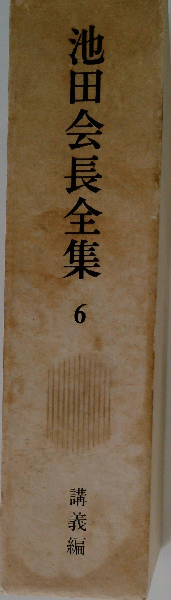 池田会長全集
6
講義編